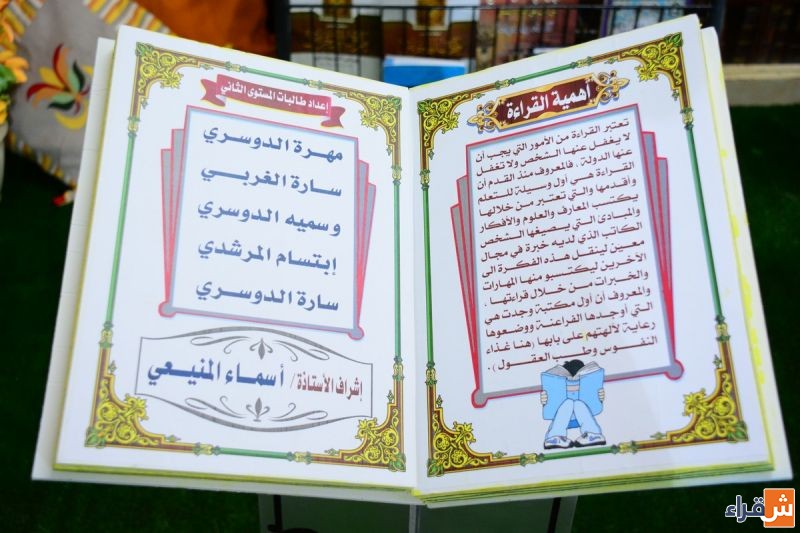 أهمية القراءة
تعتبر القراءة من الأمور التي يجب أن
لا يغفل عنها الشخص ولا تغفل
عنها الدولة . فالمعروف منذ القدم أن
القراءة هي أول وسيلة للتعلم
وأقدمها والتي تعتبر من خلالها
يكتسب المعارف والعلوم والأفكار
والمبادئ التي يصيغها الشخص
الكاتب الذي لديه خبرة في مجال
معين لينقل هذه الفكرة الى
الآخرين ليكتسبو منها المهارات
والخبرات من خلال قراءتها .
والمعروف أن أول مكتبة وجدت هي
التي أوجدها الفراعنة ووضعوها
رعاية لآلهتهم على بابها (هنا غذاء
النفوس وطب العقول ) .
إعداد طالبات المستوى الثاني
مهرة الدوسري
سارة الغربي
وسميه الدوسري
إبتسام المرشدي
سارة الدوسري
إشراف الأستاذة / أسماء المنيعي
شقراء